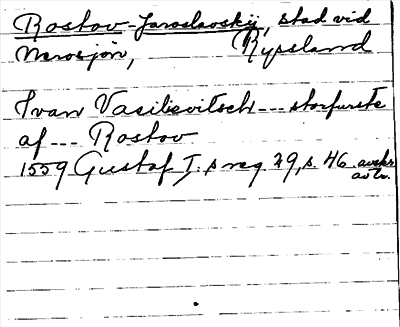 Rostov-Jaroslavskij, stad vid
Nerosjön, Ryssland
Ivan Vasilievitsch --- storfurste
af --- Rostov
1559 Gustaf I.s reg. 29, s. 46